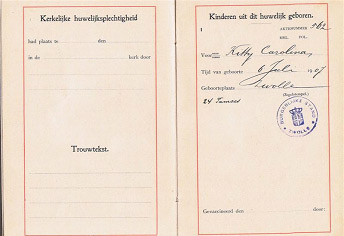 Kerkelijke huwelijksplechtigheid
had plaats te den
in de kerk door
Trouwtekst.
Kinderen uit dit huwelijk geboren.
1
AKTENUMMER 562
DEEL FOL.
Voornamen Kitty Carolina
Tijd van geboorte 6 Juli 1907
Geboorteplaats Zwolle
(Zegelstempel.)
BURGERLIJKE STAND
ZWOLLE
Gevaccineerd den door: